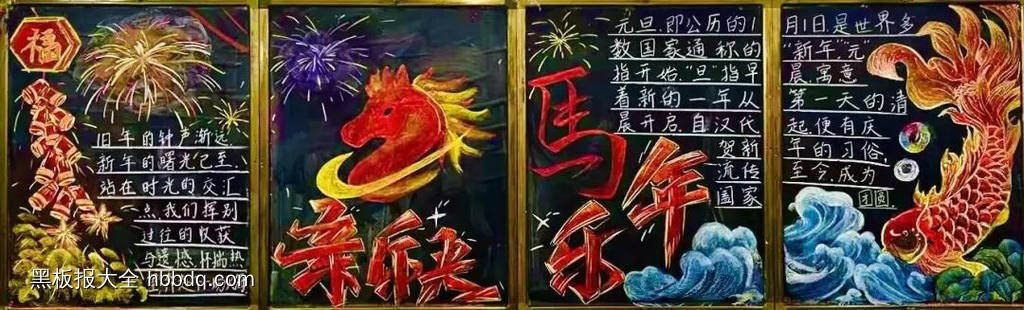 福
旧年的钟声渐远
新年的曙光已至,
站在时光的交汇
一点,我们挥别
过往的收获
与遗憾,怀揣热
新快
马年
乐
元旦,即公历的1月1日是世界多
数国家通称的"新年""元"
指开始,"旦"指早晨,寓意
着新的一年从第一天的清
晨开启,自汉代起,便有庆
贺新年的习俗,
流传至今,成为
国家团圆.
黑板报大全 hbbdq.com